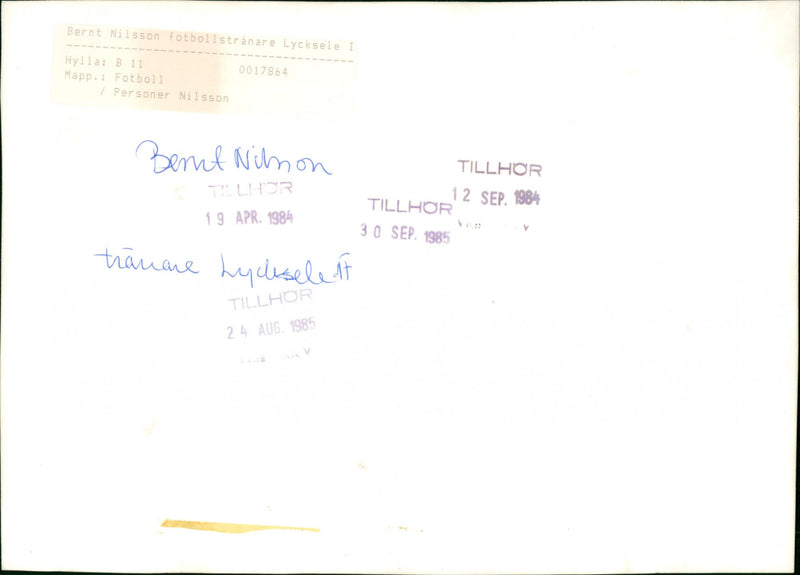 Bernt Nilsson fotbollstränare Lycksele I
Hylla: B 11 0017864
Mapp.: Fotboll
/ Personer Nilsson
Bernt Nilsson
TILLHÖR
19 APR. 1984
TILLHÖR
12 SEP. 1984
TILLHÖR
30 SEP. 1985
tränare Lycksele IF
TILLHÖR
24 AUG. 1985